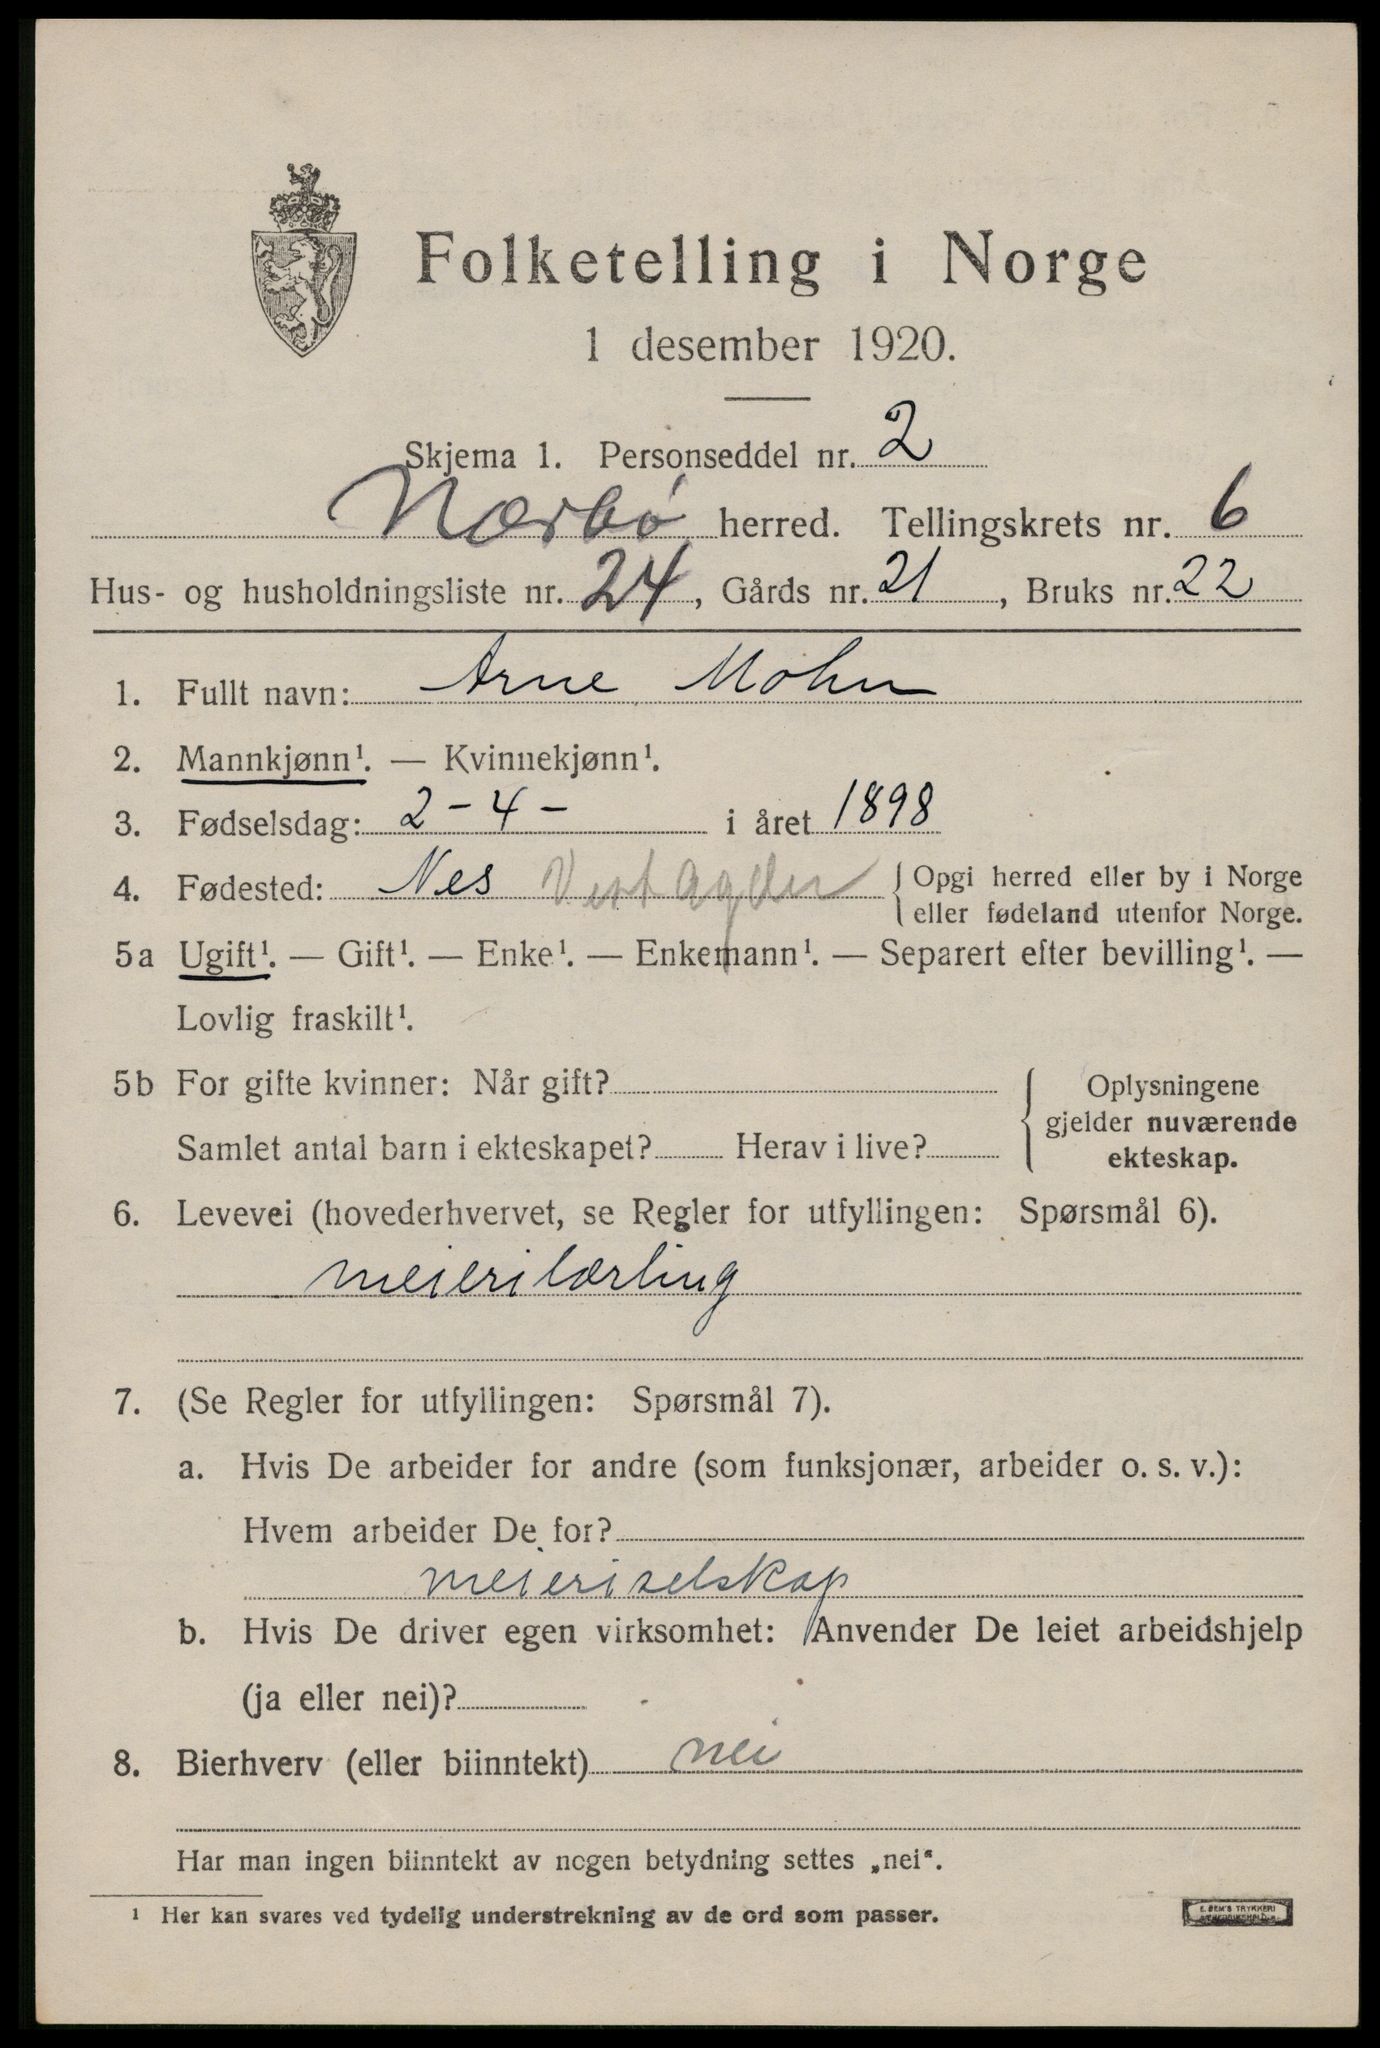 Folketelling i Norge
1 desember 1920.
Skjema 1. Personseddel nr. 2
Nærbø herred. Tellingskrets nr. 6
Hus- og husholdningsliste nr. 24, Gårds nr. 21, Bruks nr. 22
1. Fullt navn: Arne Mohn
2. Mannkjønn¹. — Kvinnekjønn¹.
3. Fødselsdag: 2-4- i året 1898
4. Fødested: Nes Vest Agder { Opgi herred eller by i Norge
eller fødeland utenfor Norge.
5a Ugift¹. — Gift¹. — Enke¹. — Enkemann¹. — Separert efter bevilling¹. —
Lovlig fraskilt¹.
5b For gifte kvinner: Når gift?
Samlet antal barn i ekteskapet? Herav i live?
Oplysningene
gjelder nuværende
ekteskap.
6. Levevei (hovederhvervet, se Regler for utfyllingen: Spørsmål 6).
meierilærling
7. (Se Regler for utfyllingen: Spørsmål 7).
a. Hvis De arbeider for andre (som funksjonær, arbeider o. s. v.):
Hvem arbeider De for?
meieriselskap
b. Hvis De driver egen virksomhet: Anvender De leiet arbeidshjelp
(ja eller nei)?
8. Bierhverv (eller biinntekt) nei
Har man ingen biinntekt av nogen betydning settes „nei“.
¹ Her kan svares ved tydelig understrekning av de ord som passer.
E. SEM'S TRYKKERI